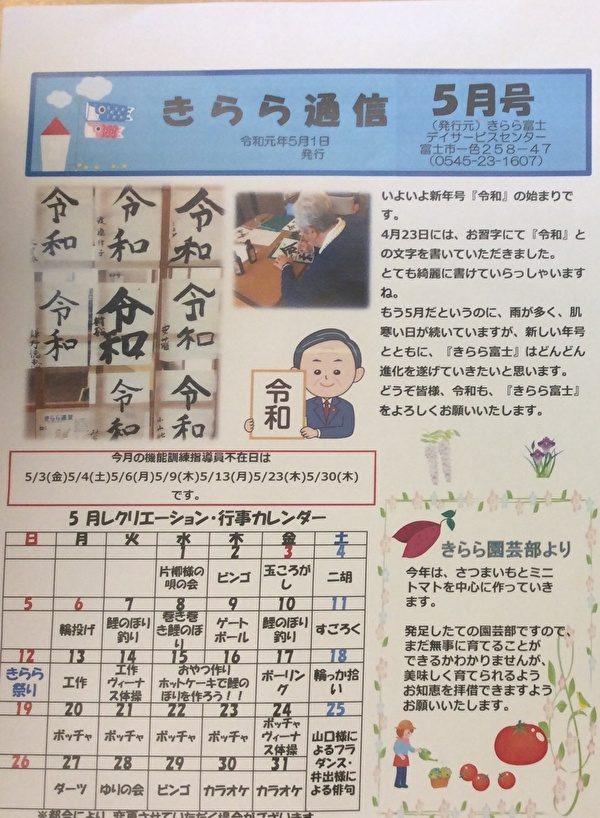 きらら通信
5月号
令和元年5月1日
発行
（発行元）きらら富士
デイサービスセンター
富士市一色２５８－４７
（0545-23-1607）
令和
令和
令和
令和
令和
令和
令和
令和
令和
いよいよ新年号『令和』の始まりで
す。
4月23日には、お習字にて『令和』と
の文字を書いていただきました。
とても綺麗に書けていらっしゃいます
ね。
もう5月だというのに、雨が多く、肌
寒い日が続いていますが、新しい年号
とともに、『きらら富士』はどんどん
進化を遂げていきたいと思います。
どうぞ皆様、令和も、『きらら富士』
をよろしくお願いいたします。
今月の機能訓練指導員不在日は
5/3(金)5/4(土)5/6(月)5/9(木)5/13(月)5/23(木)5/30(木)
です。
5 月レクリエーション・行事カレンダー
日 月 火 水 木 金 土
1 2 3 4
片柳様の
唄の会
ビンゴ
玉ころが
し
二胡
5 6 7 8 9 10 11
輪投げ
鯉のぼり
釣り
巻き巻
き鯉のぼ
り
ゲート
ボール
鯉のぼり
釣り
すごろく
12 13 14 15 16 17 18
きらら
祭り
工作
工作
ヴィーナ
ス体操
おやつ作り
ホットケーキで鯉の
ぼりを作ろう！！
ボーリン
グ
輪っか拾
い
19 20 21 22 23 24 25
ボッチャ
ボッチャ
ボッチャ
ボッチャ
ボッチャ
ヴィーナ
ス体操
山口様に
よるフラ
ダンス・
井出様に
よる俳句
26 27 28 29 30 31
ダーツ
ゆりの会
ビンゴ
カラオケ
カラオケ
きらら園芸部より
今年は、さつまいもとミニ
トマトを中心に作っていき
ます。
発足したての園芸部ですので、
まだ無事に育てることが
できるかわかりませんが、
美味しく育てられるよう
お知恵を拝借できますよう
お願いいたします。
※都合により、変更させていただく場合がございます